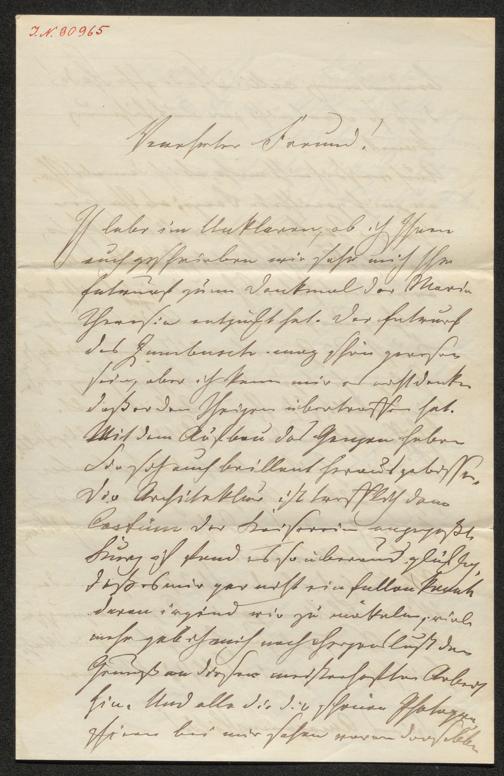 I.N. 90965
Verehrter Freund!
Ich lebe im Unklaren, ob ich Ihnen
auch geschrieben wie sehr mich Ihr
Entwurf zum Denkmal der Maria
Theresia entzückt hat. Der Entwurf
des Zumbusch mag schön gewesen
sein, aber ich kann mir es nicht denken
daß er den Ihrigen übertroffen hat.
Mit dem Aufbau des Ganzen haben
Sie sich auch brillant herausgebissen.
Die Architektur ist trefflich dem
Costüm der Kaiserin angepaßt,
kurz ich fand es so überaus glücklich,
daß es mir gar nicht einfallen konnte
daran irgend wie zu mäkeln, viel
mehr gab ich mich nach Herzenslust dem
Genuß an diesen meisterhaften Arbeit
hin. Und alle die die schönen Photogra
phieen bei mir sahen waren derselben